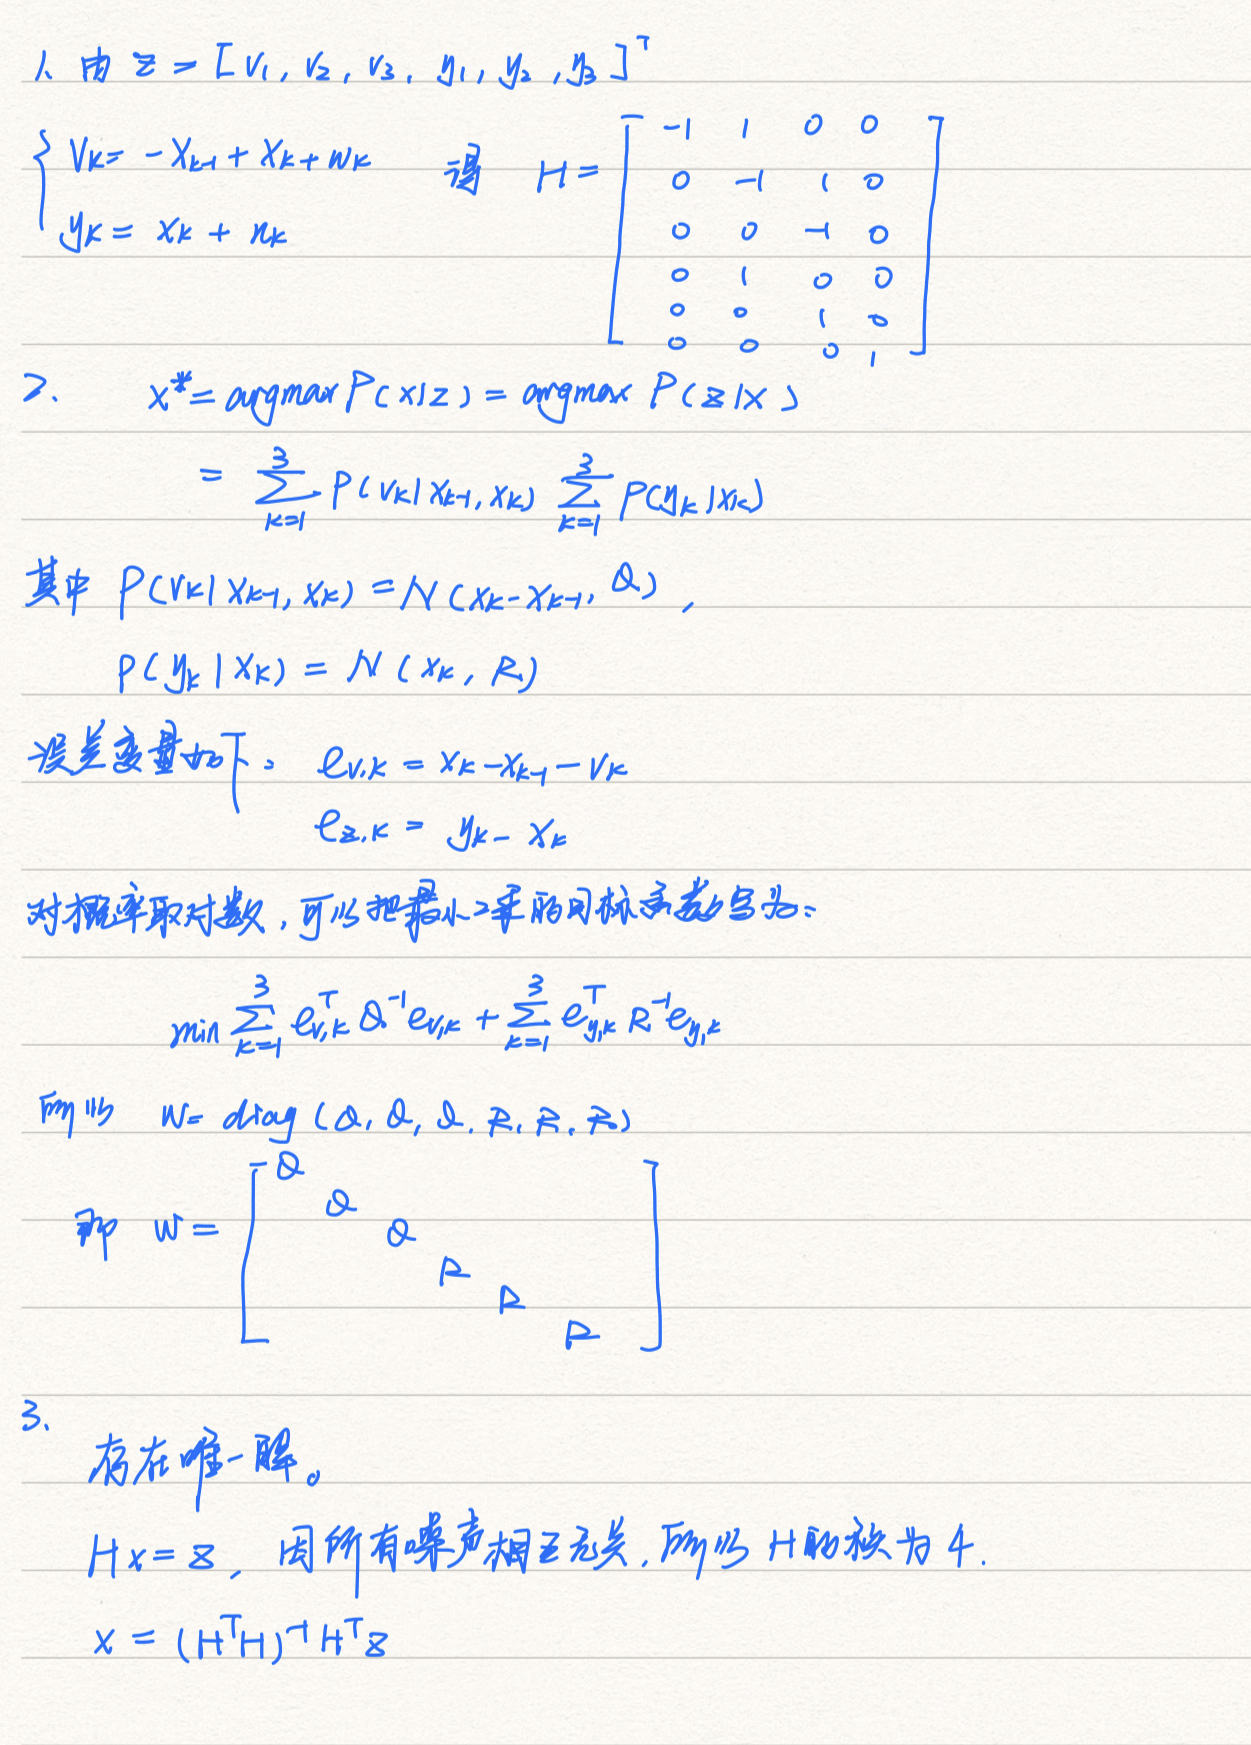 1. 由 z = [v₁, v₂, v₃, y₁, y₂, y₃]ᵀ
{ Vₖ = -Xₖ₋₁ + Xₖ + wₖ
yₖ = xₖ + nₖ
得 H = [
-1 1 0 0
0 -1 1 0
0 0 -1 0
0 1 0 0
0 0 1 0
0 0 0 1
]
2. x* = argmax P(x|z) = argmax P(z|x)
= ∑ₖ₌₁³ P(vₖ|xₖ₋₁, xₖ) ∑ₖ₌₁³ P(yₖ|xₖ)
其中 P(vₖ|xₖ₋₁, xₖ) = N(xₖ - xₖ₋₁, Q),
P(yₖ|xₖ) = N(xₖ, R)
误差变量如下: e_{v,k} = xₖ - xₖ₋₁ - vₖ
e_{z,k} = yₖ - xₖ
对概率取对数, 可以把最小2乘的目标函数写为:
min ∑ₖ₌₁³ e_{v,k}ᵀ Q⁻¹ e_{v,k} + ∑ₖ₌₁³ e_{y,k}ᵀ R⁻¹ e_{y,k}
所以 W = diag(Q, Q, Q, R, R, R)
即 W = [
Q
Q
Q
R
R
R
]
3.
存在唯一解。
Hx = z, 因所有噪声相互无关, 所以 H 的秩为 4.
x = (HᵀH)⁻¹Hᵀz